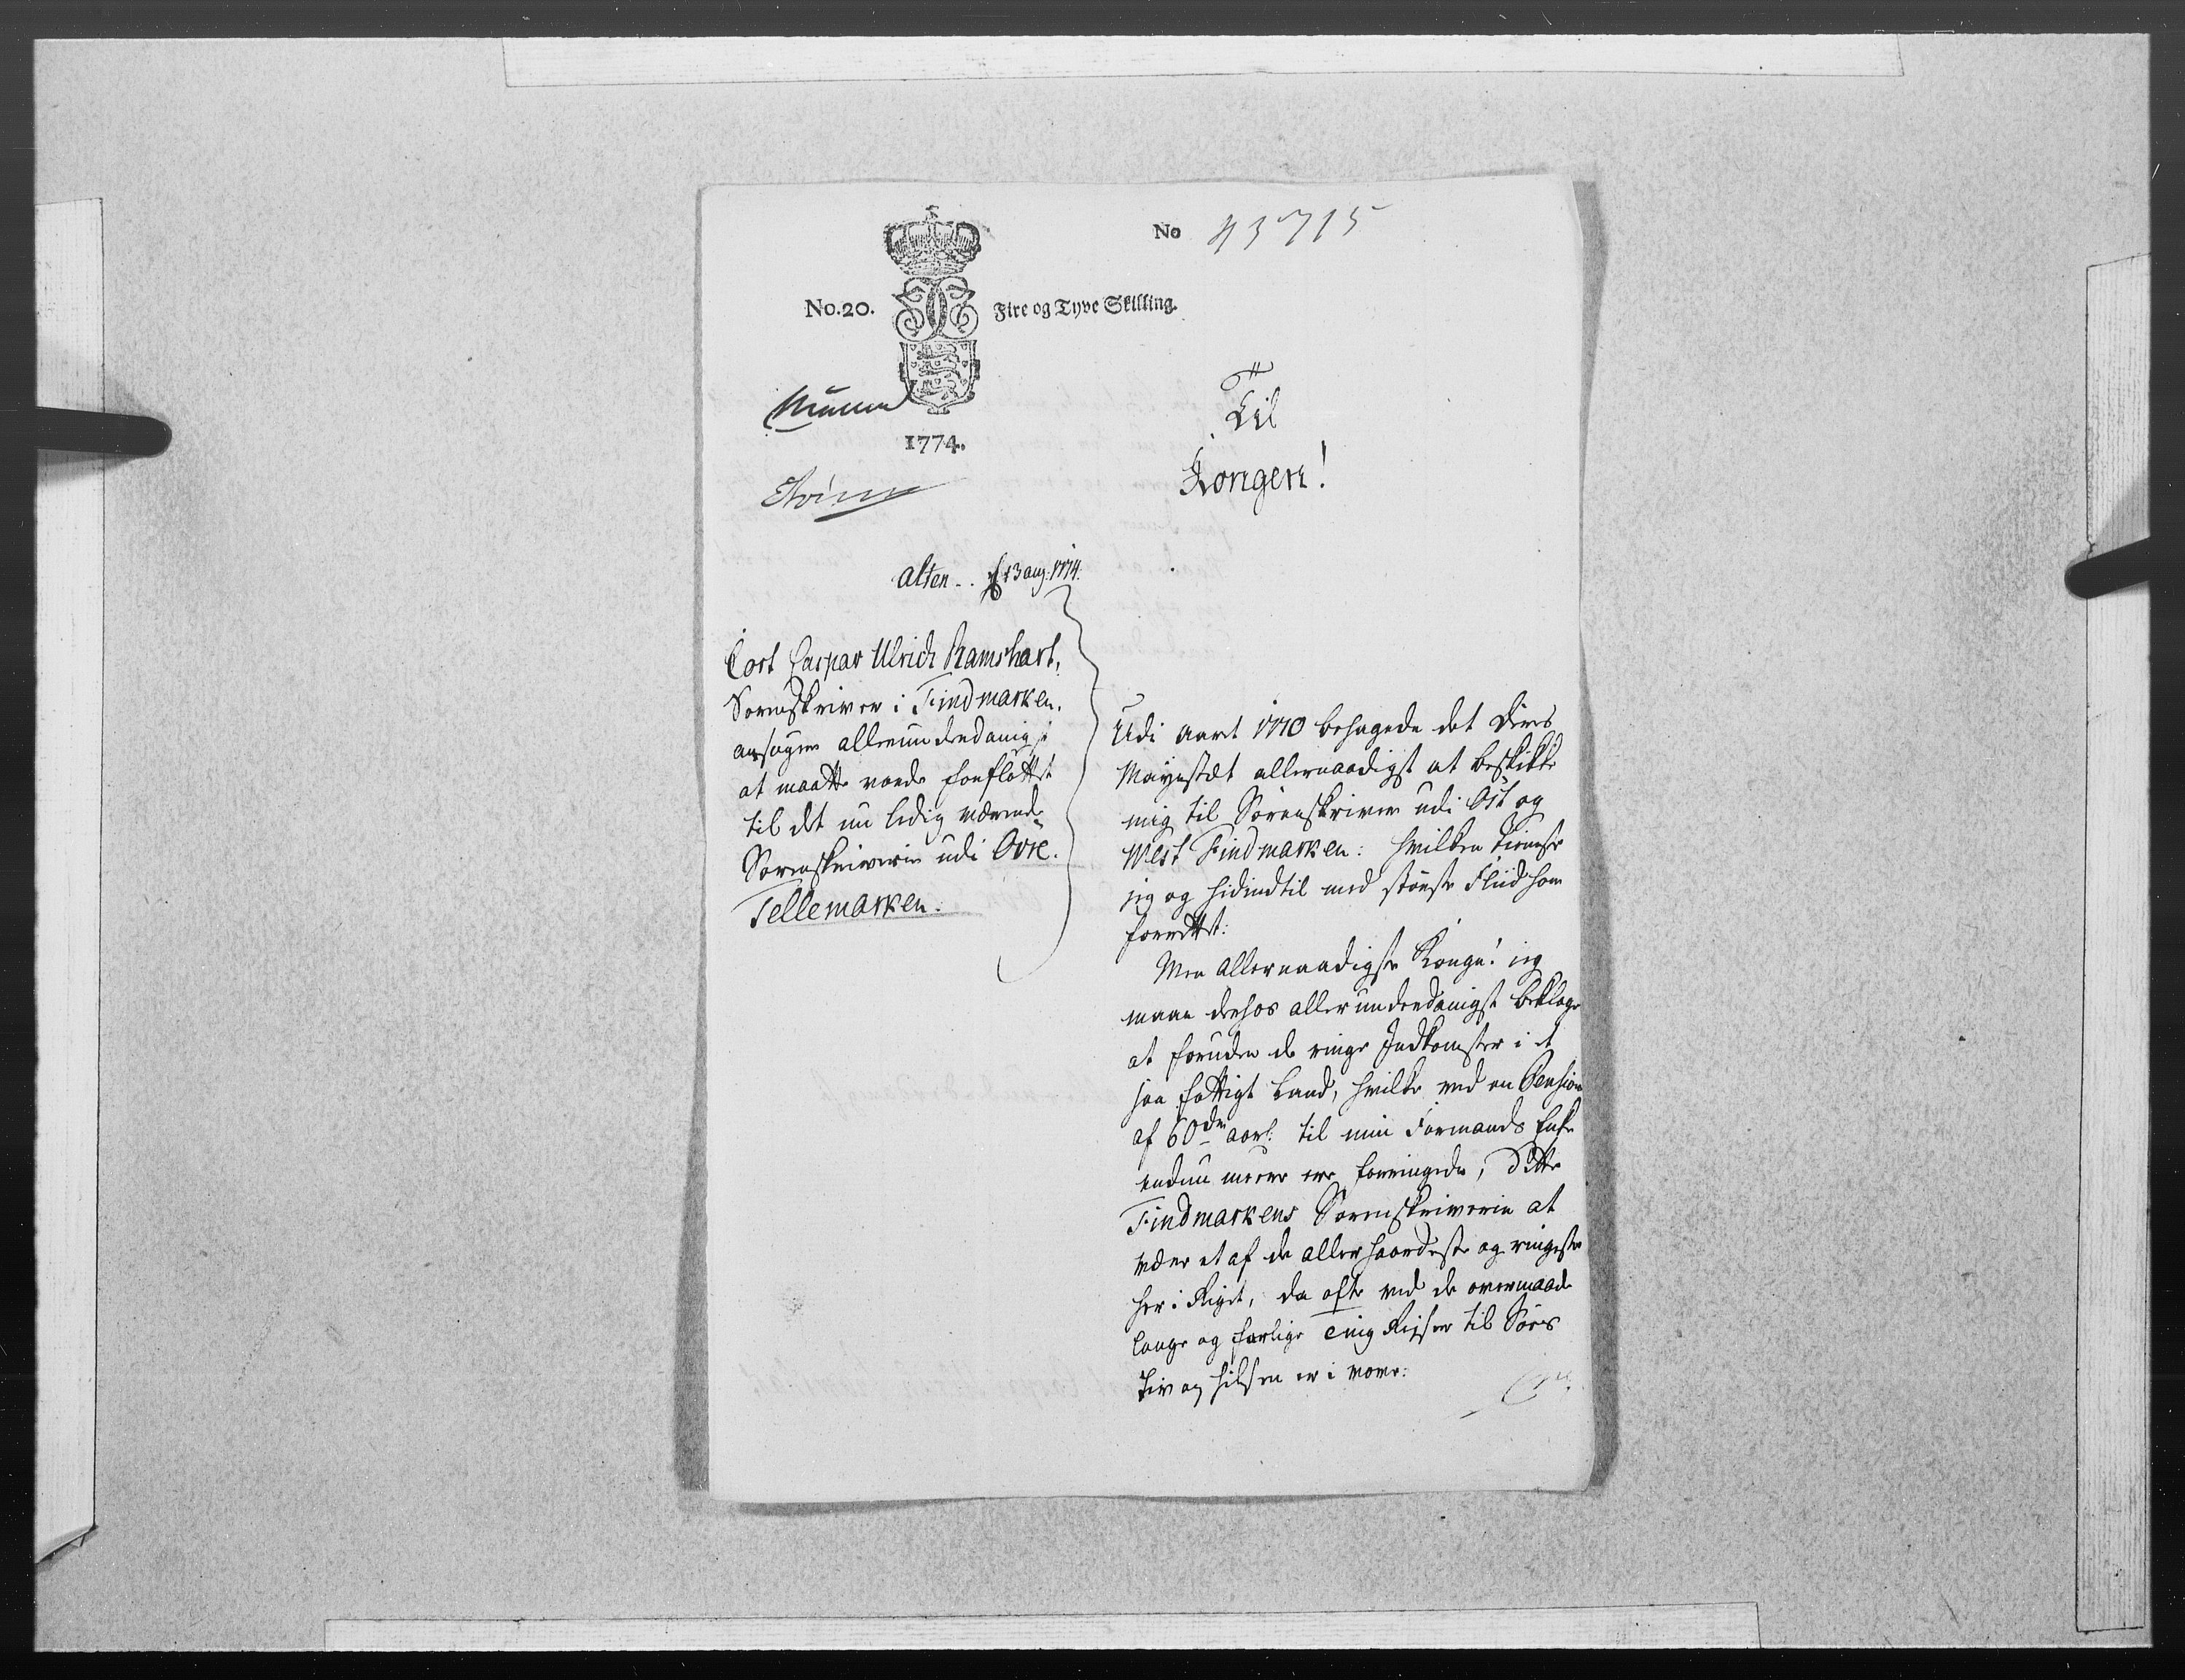 No 43715
No. 20. Fire og Tyve Skilling.
1774.
Til
Kongen!
Alten.. d 13 aug: 1774.
Cort Caspar Ulrich Ramshart,
Sorenskriver i Findmarken.
ansøger allerunderdanigst
at maatte vorde forfløttet
til det nu ledig værende
Sorenskriverie udi Øvre.
Tellemarken.
Udi aaret 1770 behagede det Deres
Mayestæt allernaadigst at beskikke
mig til Sorenskriver udi Ost og
West Findmarken: hvilken tieneste
jeg og hidindtil med største Fliid har
forrettet:
Men Allernaadigste Konge! jeg
maae derhos allerunderdanigst beklage
at foruden de ringe Indkomster i et
saa fattigt Land, hvilke ved en Pension
af 60 dr aarl: til min Formands Enke
endnu meere ere forringede, dette
Findmarkens Sorenskriverie at
være et af de allerhaardeste og ringeste
her i Riget, da ofte ved de overmaade
lange og farlige Ting Reiser til Søes
Liv og Helsen er i vove: